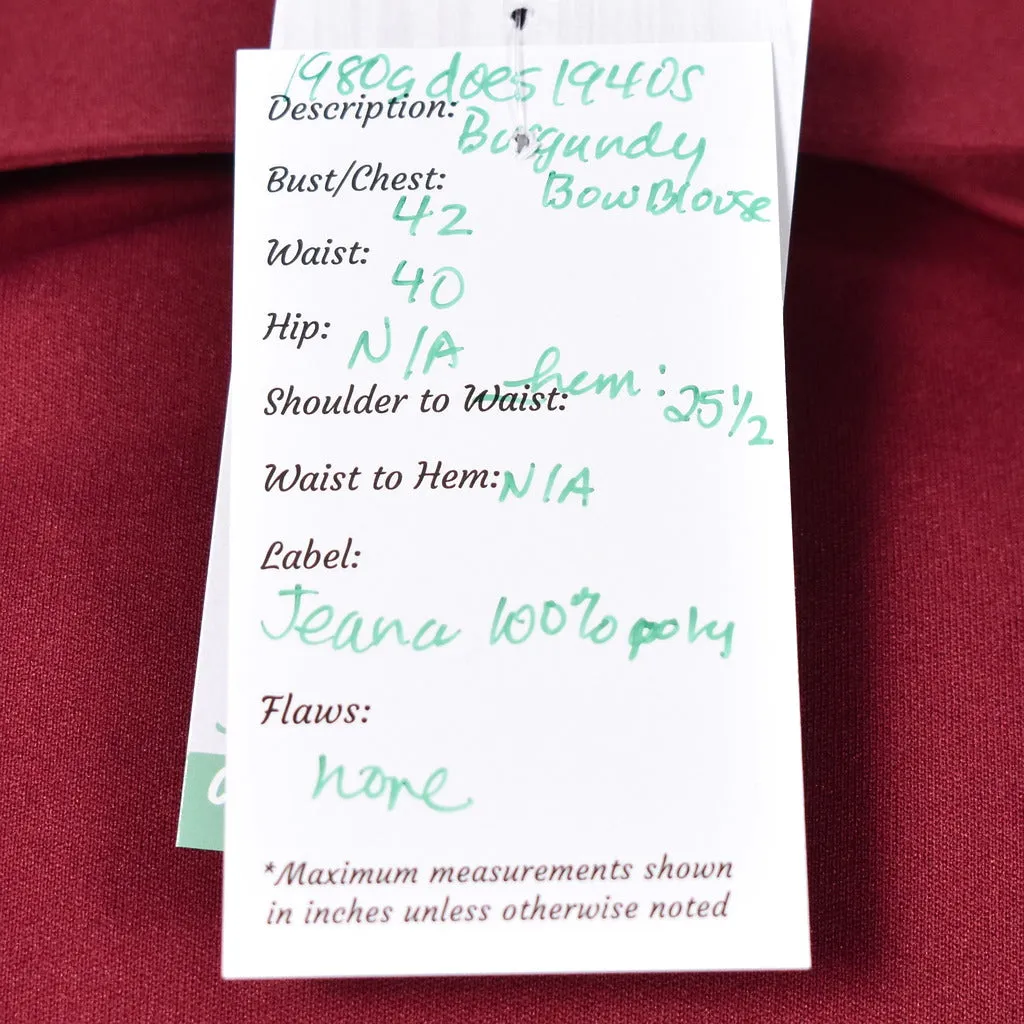 1980s does 1940s
Description: Burgundy
Bow Blouse
Bust/Chest:
42
Waist:
40
Hip:
N/A
hem: 25 1/2
Shoulder to Waist:
Waist to Hem: N/A
Label:
Jeana 100% poly
Flaws:
none
*Maximum measurements shown
in inches unless otherwise noted